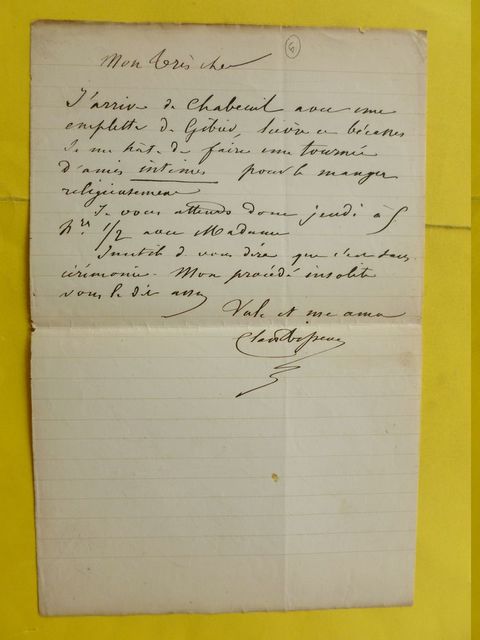 6
Mon très cher
J'arrive de Chabeuil avec une
emplette de Gibier, lièvre et bécasses
Je me hâte de faire une tournée
d'amis intimes pour le manger
religieusement
Je vous attends donc jeudi à 5
hres 1/2 avec Madame
Inutile de vous dire que c'est sans
cérémonie. Mon procédé insolite
vous le dit assez
Vale et me ama